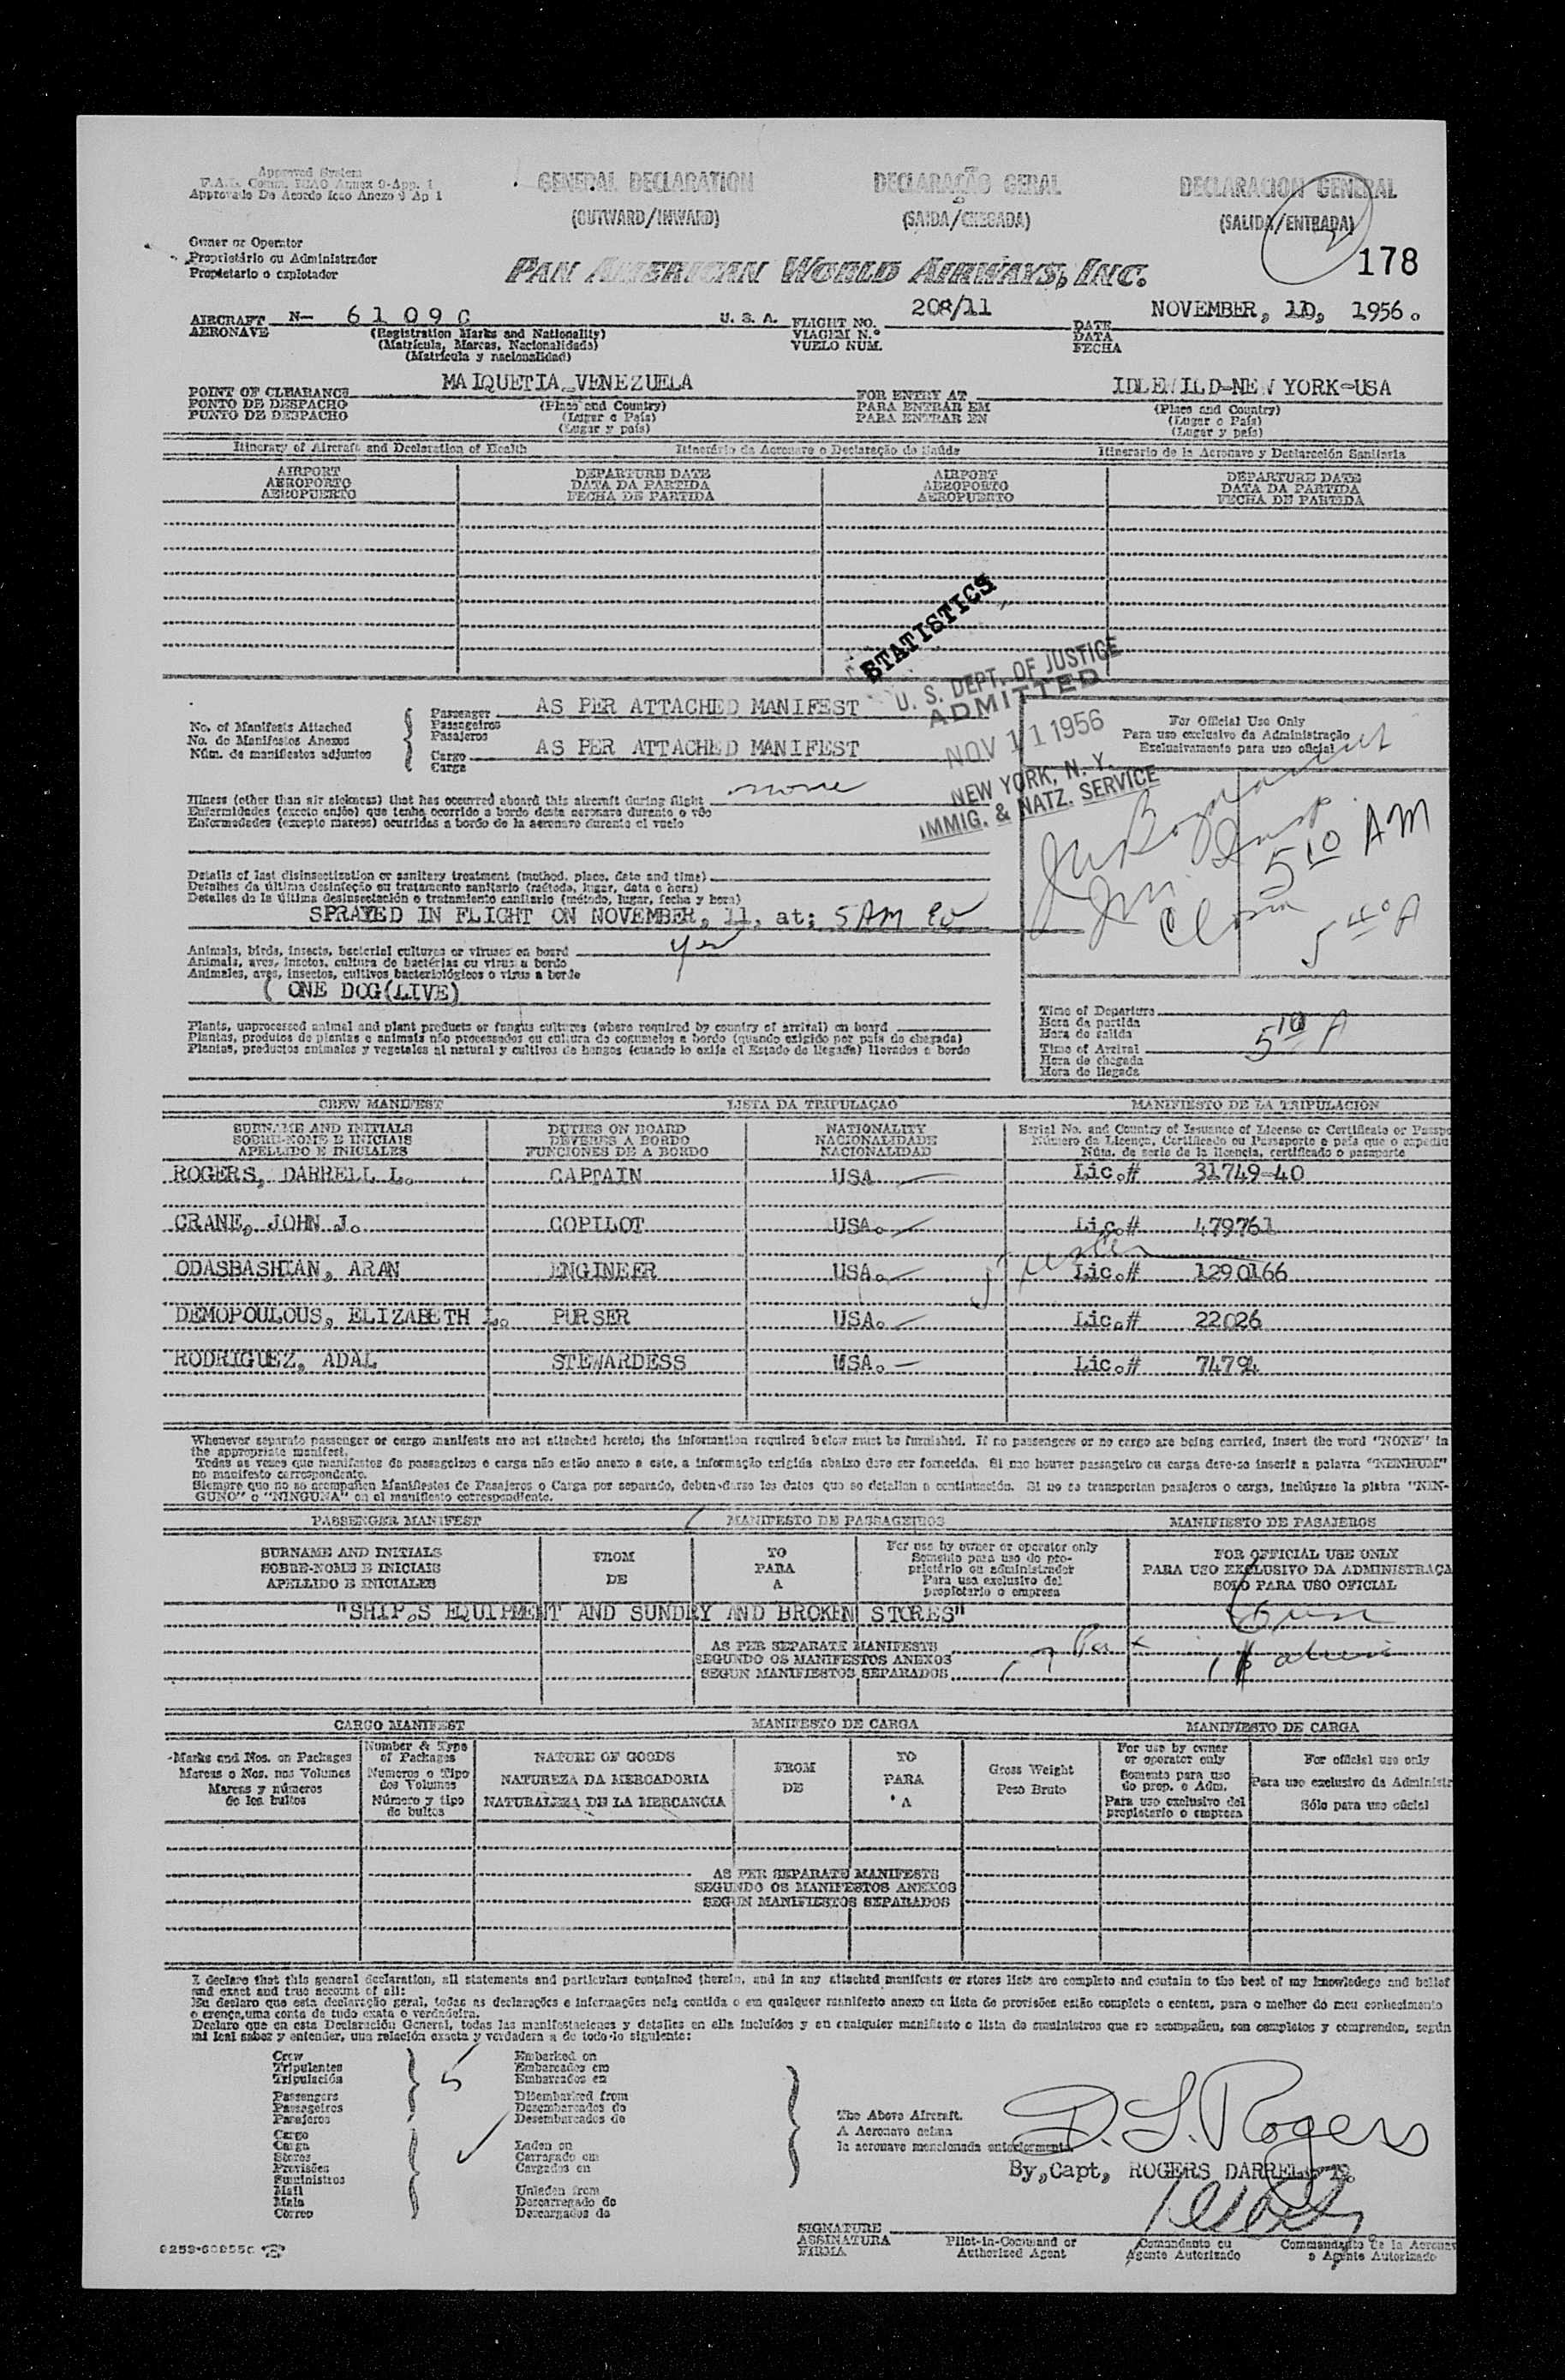 Approved System
F.A.L. Comm. ICAO Annex 9-App. 1
Approvado De Acordo Icao Anexo 9 Ap 1
GENERAL DECLARATION
(OUTWARD/INWARD)
DECLARAÇÃO GERAL
(SAIDA/CHEGADA)
DECLARACION GENERAL
(SALIDA/ENTRADA)
178
Owner or Operator
Proprietário ou Administrador
Propietario o explotador
PAN AMERICAN WORLD AIRWAYS, INC.
AIRCRAFT N- 6109C U. S. A. FLIGHT NO. 208/11 DATE NOVEMBER, 10, 1956.
AERONAVE (Registration Marks and Nationality) VIAGEM N.º DATA
(Matrícula, Marcas, Nacionalidade) VUELO NUM. FECHA
(Matrícula y nacionalidad)
POINT OF CLEARANCE MAIQUETIA-VENEZUELA FOR ENTRY AT IDLEWILD-NEW YORK-USA
PONTO DE DESPACHO (Place and Country) PARA ENTRAR EM (Place and Country)
PUNTO DE DESPACHO (Lugar e País) PARA ENTRAR EN (Lugar o País)
(Lugar y país) (Lugar y país)
Itinerary of Aircraft and Declaration of Health Itinerário da Aeronave e Declaração de Saúde Itinerario de la Aeronave y Declaración Sanitaria
AIRPORT DEPARTURE DATE AIRPORT DEPARTURE DATE
AEROPORTO DATA DA PARTIDA AEROPORTO DATA DA PARTIDA
AEROPUERTO FECHA DE PARTIDA AEROPUERTO FECHA DE PARTIDA
STATISTICS
U. S. DEPT. OF JUSTICE
ADMITTED
NOV 11 1956
NEW YORK, N. Y.
IMMIG. & NATZ. SERVICE
No. of Manifests Attached
No. de Manifestos Anexos
Núm. de manifiestos adjuntos
Passenger AS PER ATTACHED MANIFEST
Passageiros
Pasajeros
Cargo AS PER ATTACHED MANIFEST
Carga
For Official Use Only
Para uso exclusivo da Administração
Exclusivamente para uso oficial
Illness (other than air sickness) that has occurred aboard this aircraft during flight none
Enfermidades (exceto enjôo) que tenha ocorrido a bordo desta aeronave durante o vôo
Enfermedades (excepto mareos) ocurridas a bordo de la aeronave durante el vuelo
5 10 AM
5 40 A
Details of last disinsectization or sanitary treatment (method, place, date and time)
Detalhes da última desinfeção ou tratamento sanitario (método, lugar, data e hora)
Detalles de la última desinsectación o tratamiento sanitario (método, lugar, fecha y hora)
SPRAYED IN FLIGHT ON NOVEMBER, 11, at; 5 AM
Animals, birds, insects, bacterial cultures or viruses on board yes
Animais, aves, insetos, cultura de bactérias ou virus a bordo
Animales, aves, insectos, cultivos bacteriológicos o virus a bordo
( ONE DOG(LIVE)
Plants, unprocessed animal and plant products or fungus cultures (where required by country of arrival) on board
Plantas, produtos de plantas e animais não processados ou cultura de cogumelos a bordo (quando exigido por país de chegada)
Plantas, productos animales y vegetales al natural y cultivos de hongos (cuando lo exija el Estado de llegada) llevados a bordo
Time of Departure
Hora da partida
Hora de salida
Time of Arrival 5 10 A
Hora de chegada
Hora de llegada
CREW MANIFEST LISTA DA TRIPULAÇAO MANIFIESTO DE LA TRIPULACION
SURNAME AND INITIALS DUTIES ON BOARD NATIONALITY Serial No. and Country of Issuance of License or Certificate or Passpo
SOBRE-NOME E INICIAIS DEVERES A BORDO NACIONALIDADE Número da Licença, Certificado ou Passaporte e país que o expediu
APELLIDO E INICIALES FUNCIONES DE A BORDO NACIONALIDAD Núm. de serie de la licencia, certificado o pasaporte
ROGERS, DARRELL L. CAPTAIN USA Lic.# 31749-40
CRANE, JOHN J. COPILOT USA. Lic.# 479761
ODASBASHIAN, ARAN ENGINEER USA. Lic.# 1290166
DEMOPOULOUS, ELIZABETH L. PURSER USA. Lic.# 22026
RODRIGUEZ, ADAL STEWARDESS USA. Lic.# 74794
Whenever separate passenger or cargo manifests are not attached hereto, the information required below must be furnished. If no passengers or no cargo are being carried, insert the word "NONE" in
the appropriate manifest.
Todas as vezes que manifestos de passageiros e carga não estão anexo a este, a informação exigida abaixo deve ser fornecida. Si nao houver passageiro ou carga deve-se inserir a palavra "NENHUM"
no manifesto correspondente.
Siempre que no se acompañen Manifiestos de Pasajeros o Carga por separado, deben darse los datos que se detallan a continuación. Si no se transportan pasajeros o carga, inclúyase la plabra "NIN-
GUNO" o "NINGUNA" en el manifiesto correspondiente.
PASSENGER MANIFEST MANIFESTO DE PASSAGEIROS MANIFIESTO DE PASAJEROS
SURNAME AND INITIALS FROM TO For use by owner or operator only FOR OFFICIAL USE ONLY
SOBRE-NOME E INICIAIS DE PARA Somente para uso do pro- PARA USO EXCLUSIVO DA ADMINISTRAÇA
APELLIDO E INICIALES A prietário ou administrador SOLO PARA USO OFICIAL
Para uso exclusivo del
propietario o empresa
"SHIP.S EQUIPMENT AND SUNDRY AND BROKEN STORES"
AS PER SEPARATE MANIFESTS
SEGUNDO OS MANIFESTOS ANEXOS
SEGUN MANIFIESTOS SEPARADOS
CARGO MANIFEST MANIFESTO DE CARGA MANIFIESTO DE CARGA
Marks and Nos. on Packages Number & Type of Packages NATURE OF GOODS FROM TO Gross Weight For use by owner or operator only For official use only
Marcas o Nos. nos Volumes Numeros o Tipo dos Volumes NATUREZA DA MERCADORIA DE PARA Peso Bruto Somente para uso do prop. e Adm. Para uso exclusivo da Administr
Marcas y números de los bultos Número y tipo de bultos NATURALEZA DE LA MERCANCIA A Para uso exclusivo del propietario o empresa Sólo para uso oficial
AS PER SEPARATE MANIFESTS
SEGUNDO OS MANIFESTOS ANEXOS
SEGUN MANIFIESTOS SEPARADOS
I declare that this general declaration, all statements and particulars contained therein, and in any attached manifests or stores lists are complete and contain to the best of my knowledege and belief
and exact and true account of all:
Eu declaro que esta declaração geral, todas as declarações e informações nela contida o em qualquer manifesto anexo ou lista de provisões estão completo e contem, para o melhor do meu conhecimento
e crença,uma conta de tudo exata e verdadeira:
Declaro que en esta Declaración General, todas las manifestaciones y detalles en ella incluídos y en cualquier manifiesto o lista de suministros que se acompañen, son completos y comprenden, según
mi leal saber y entender, una relación exacta y verdadera a de todo lo siguiente:
Crew 5 Embarked on
Tripulantes Embarcados em
Tripulación Embarcados en
Passengers Disembarked from
Passageiros Desembarcados do
Pasajeros Desembarcados de
Cargo
Carga Laden on
Stores Carregado em
Provisões Cargados en
Suministros
Mail Unladen from
Mala Descarregado do
Correo Descargados de
The Above Aircraft.
A Aeronave acima
la aeronave mencionada anteriormente
D. L. Rogers
By,Capt, ROGERS DARRELL L.
SIGNATURE
ASSINATURA Pilot-in-Command or Comandante ou Commandante de la Aeronav
FIRMA Authorized Agent Agente Autorizado o Agente Autorizado